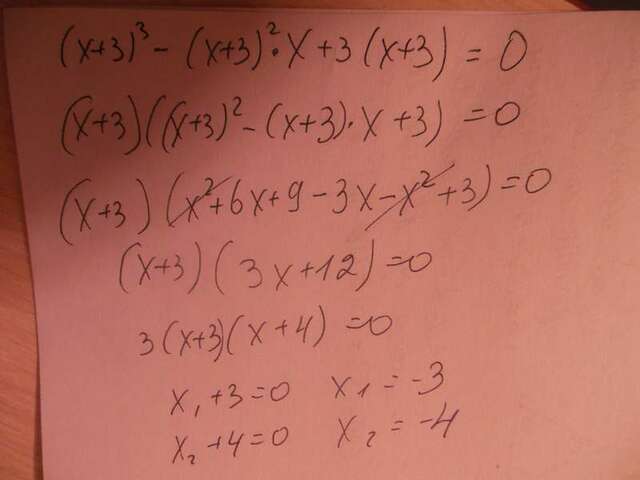 (x+3)³ - (x+3)²·x + 3(x+3) = 0
(x+3)((x+3)² - (x+3)·x + 3) = 0
(x+3)(x² + 6x + 9 - 3x - x² + 3) = 0
(x+3)(3x+12) = 0
3(x+3)(x+4) = 0
x₁ + 3 = 0 x₁ = -3
x₂ + 4 = 0 x₂ = -4